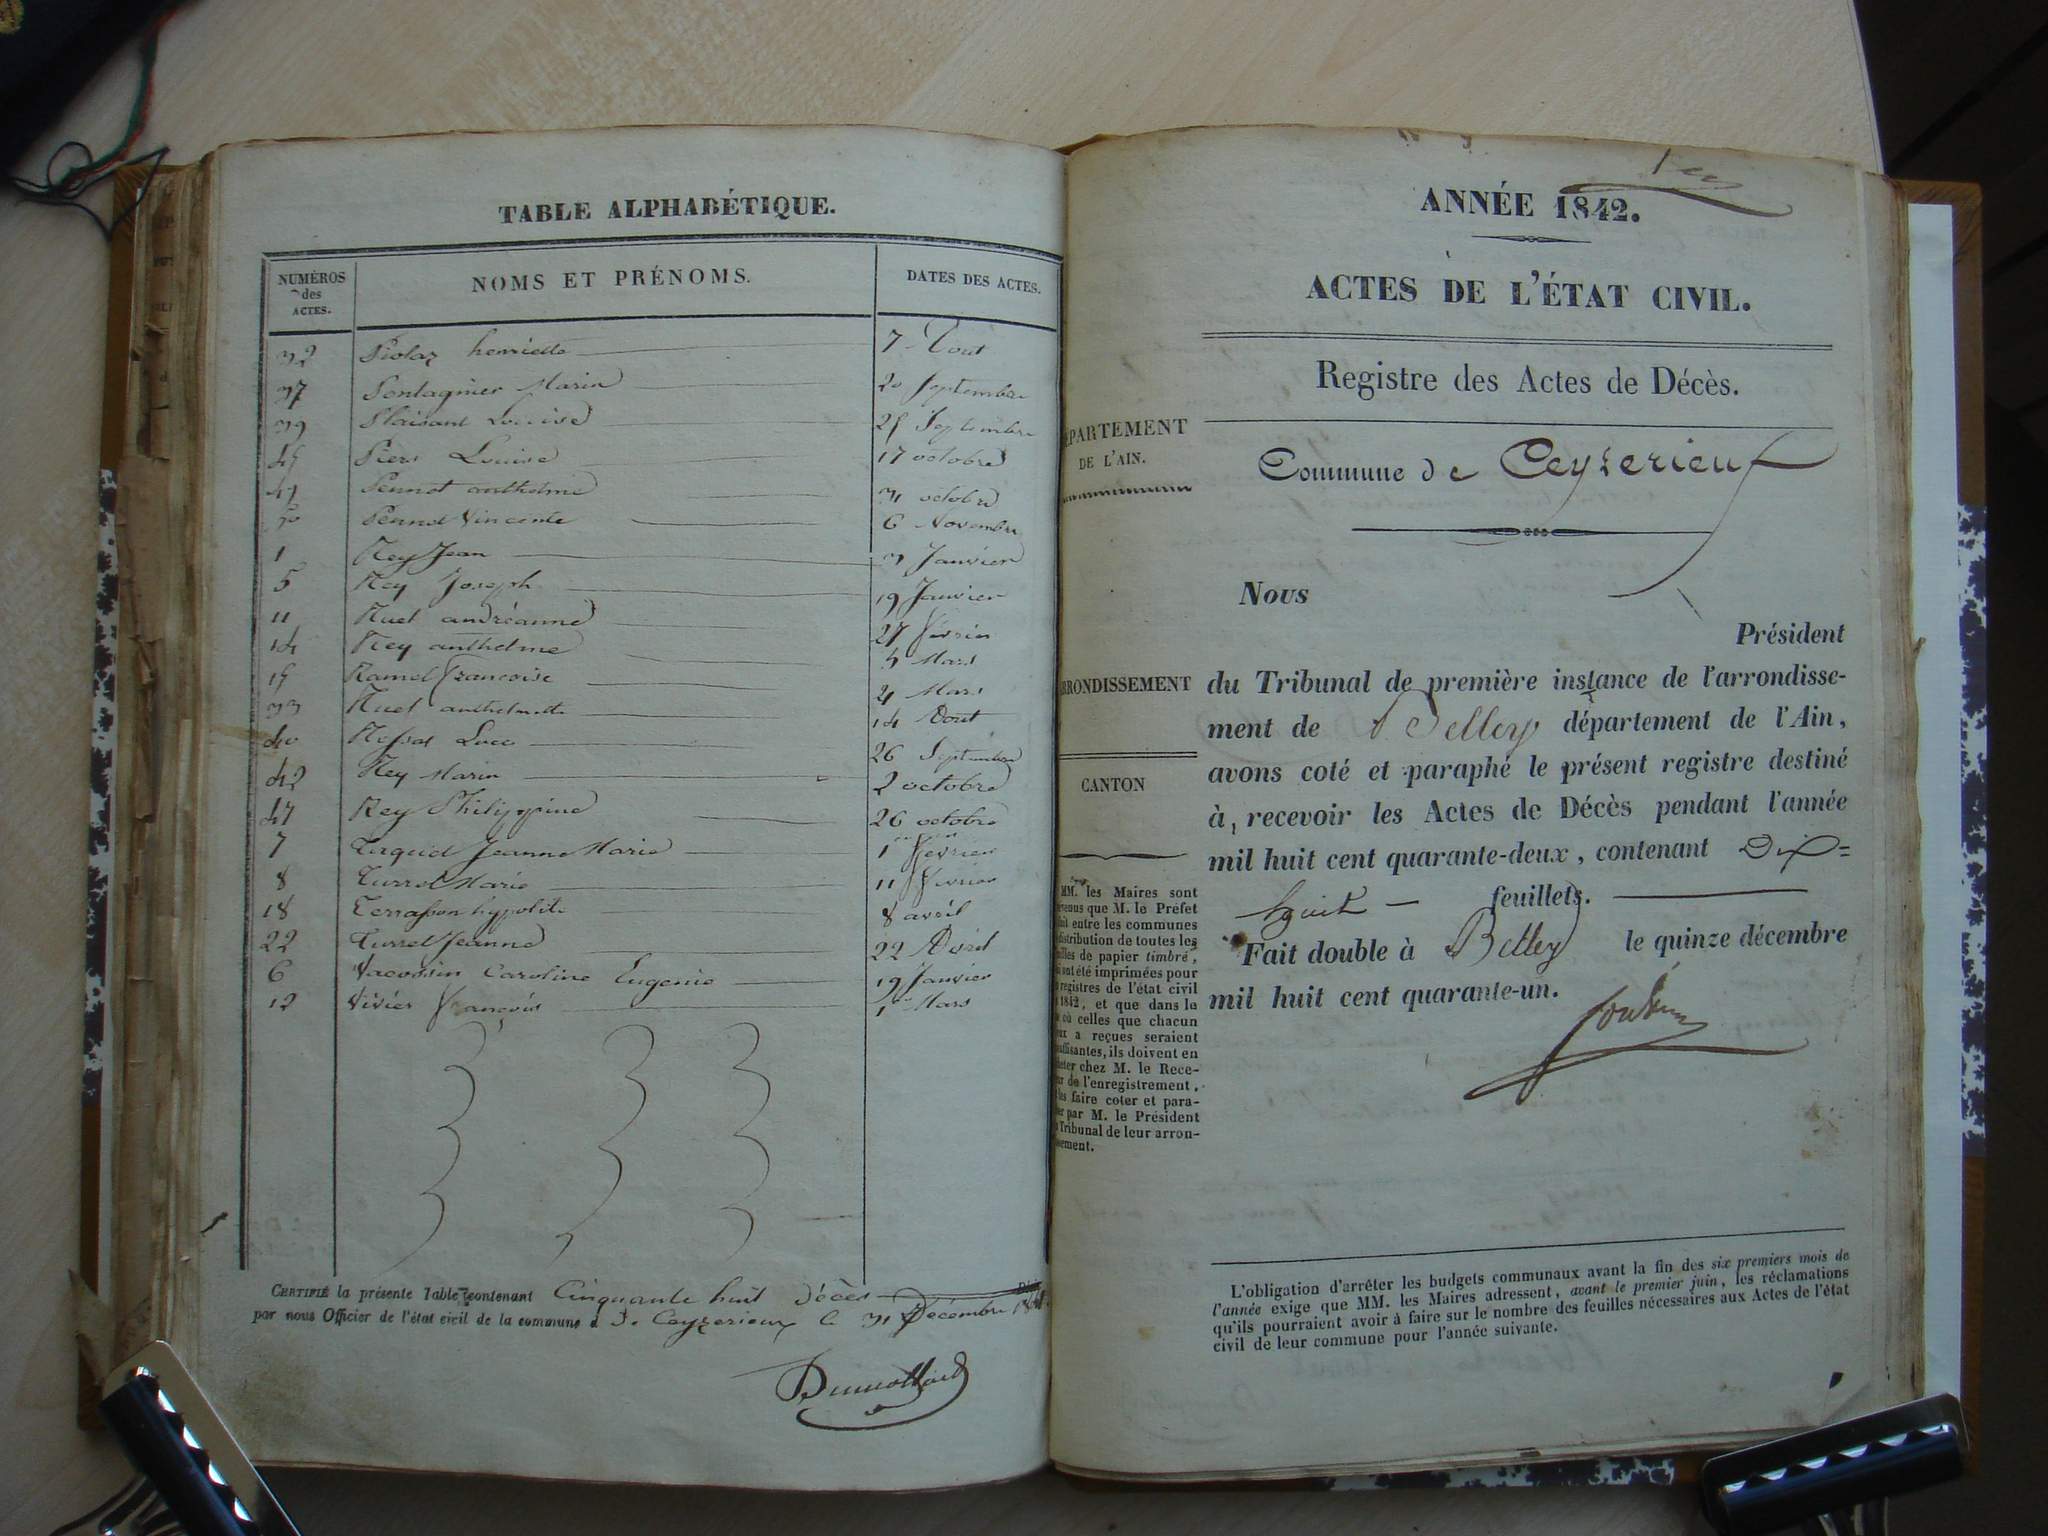 TABLE ALPHABÉTIQUE.
NUMÉROS des ACTES. NOMS ET PRÉNOMS. DATES DES ACTES.
32 Piolaz henriette 7 Aout
37 Pontagnier Marin 20 Septembre
39 Plaisant Louise 25 Septembre
45 Piers Louise 17 octobre
49 Pennot anthelme 31 octobre
50 Pennot Vincente 6 Novembre
1 Rey Jean 3 Janvier
5 Rey Joseph 19 Janvier
11 Ruet andréanne 27 février
14 Rey anthelme 5 Mars
15 Ramel françoise Mars
33 Ruet anthelmette 14 Aout
40 Luce 26 Septembre
42 Rey Marin 2 octobre
47 Rey Philippine 26 octobre
7 Jeanne Marie 1er février
8 Turrel Marie 11 février
18 Terrasson hypolite 8 avril
22 Turrel Jeanne 22 Avril
6 Caroline Eugenie 19 Janvier
12 Vivier françois 1er Mars
CERTIFIÉ la présente Table contenant Cinquante huit Décès
par nous Officier de l'état civil de la commune de Ceyzerieux le 31 Décembre
Dumollard
1er
ANNÉE 1842.
ACTES DE L'ÉTAT CIVIL.
Registre des Actes de Décès.
ÉPARTEMENT
DE L'AIN.
Commune de Ceyzerieux
Nous
Président
RRONDISSEMENT
du Tribunal de première instance de l'arrondisse-
ment de Belley département de l'Ain,
avons coté et paraphé le présent registre destiné
CANTON
à recevoir les Actes de Décès pendant l'année
mil huit cent quarante-deux, contenant Dix=
huit feuillets.
Fait double à Belley le quinze décembre
mil huit cent quarante-un.
MM. les Maires sont
venus que M. le Préfet
ait entre les communes
distribution de toutes les
uilles de papier timbré,
i ont été imprimées pour
registres de l'état civil
1842, et que dans le
où celles que chacun
eux a reçues seraient
suffisantes, ils doivent en
heter chez M. le Rece-
ur de l'enregistrement,
les faire coter et para-
er par M. le Président
Tribunal de leur arron-
ssement.
L'obligation d'arrêter les budgets communaux avant la fin des six premiers mois de
l'année exige que MM. les Maires adressent, avant le premier juin, les réclamations
qu'ils pourraient avoir à faire sur le nombre des feuilles nécessaires aux Actes de l'état
civil de leur commune pour l'année suivante.